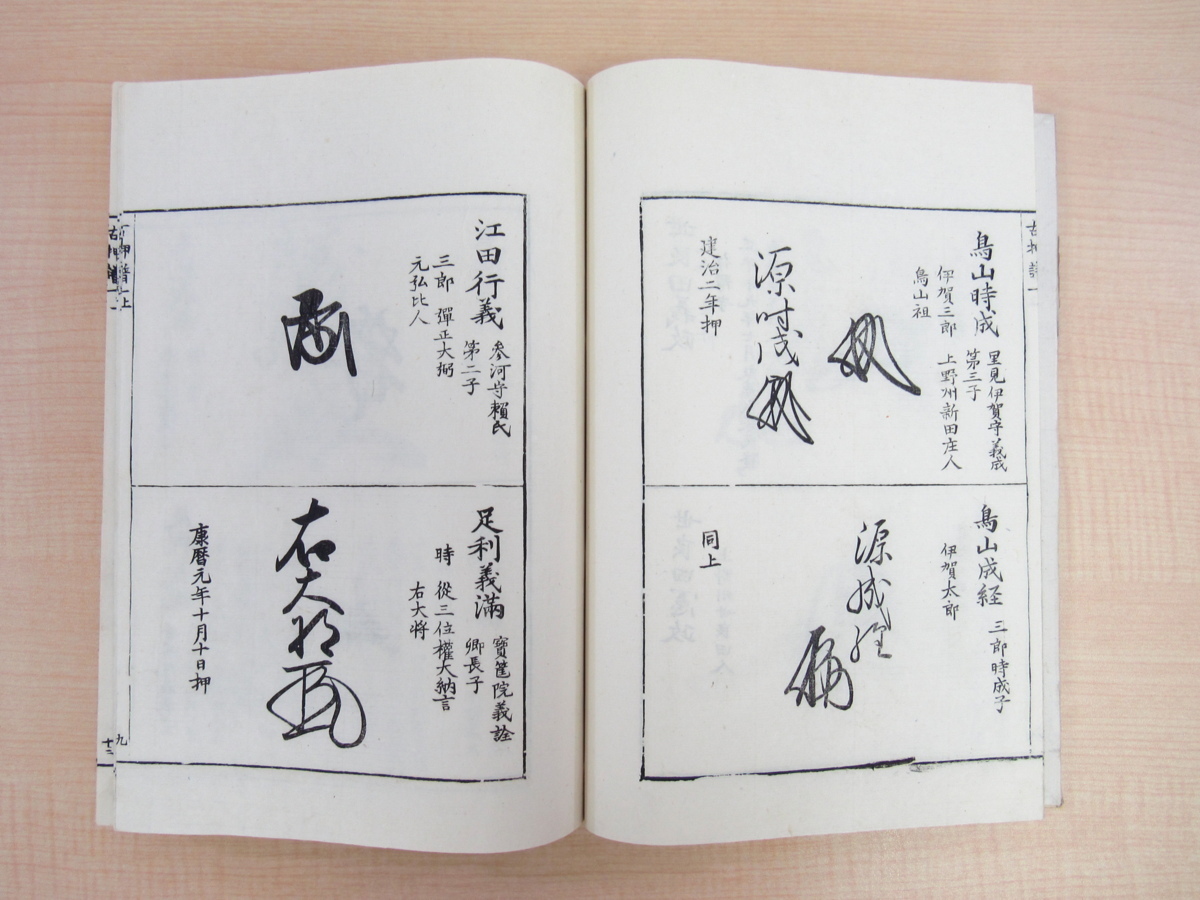 鳥山時成
里見伊賀守義成
第三子
伊賀三郎 上野州新田庄人
鳥山祖
源時成
建治二年押
鳥山成経 三郎時成子
伊賀太郎
源成経
同上
江田行義
参河守頼氏
第二子
三郎 彈正大弼
元弘比人
足利義滿
寶篋院義詮
卿長子
時 從三位權大納言
右大将
右大将
康暦元年十月十日押
九
十二